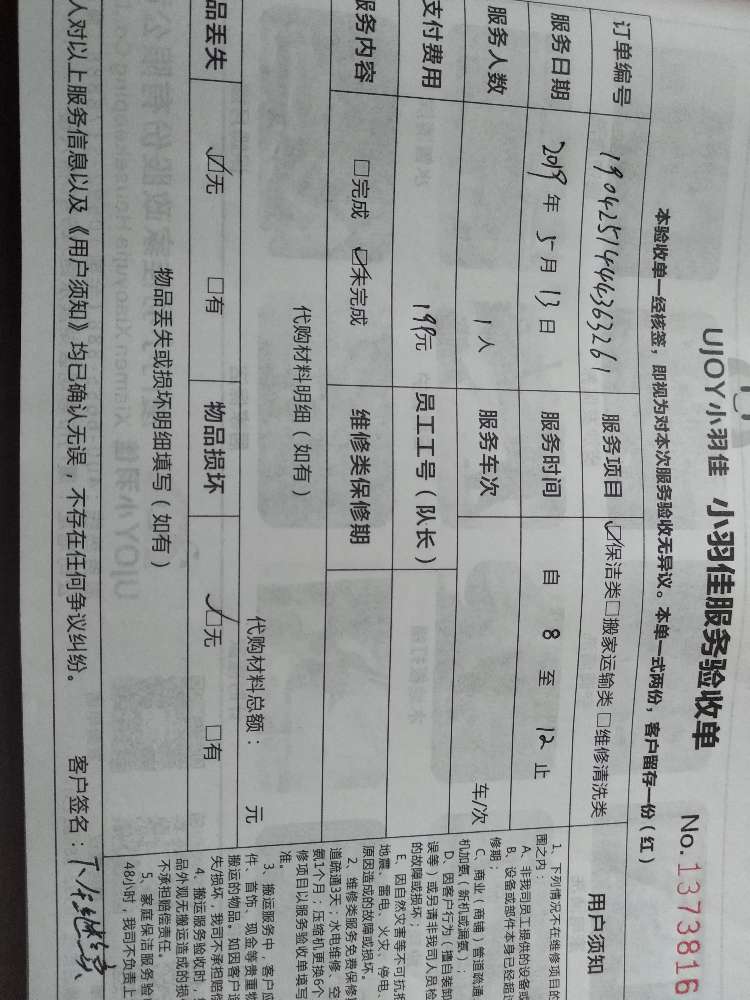 UJOY小羽佳 小羽佳服务验收单 No.1373816
本验收单一经核签，即视为对本次服务验收无异议。本单一式两份，客户留存一份（红）
订单编号 1904251444363261 服务项目 ☑保洁类□搬家运输类□维修清洗类
服务日期 2019年5月13日 服务时间 自 8 至 12 止
服务人数 1人 服务车次 车/次
支付费用 199元 员工工号（队长）
服务内容 □完成 ☑未完成 维修类保修期
代购材料明细（如有）
代购材料总额： 元
品丢失 ☑无 □有 物品损坏 ☑无 □有
物品丢失或损坏明细填写（如有）
人对以上服务信息以及《用户须知》均已确认无误，不存在任何争议纠纷。 客户签名：
用户须知
1、下列情况不在维修项目的
围之内：
A、非我司员工提供的设备或
B、设备或部件本身已经超过
修期；
C、商业（商铺）管道疏通
机加氨（新机或漏氨）；
D、因客户行为（擅自装卸
误等）或另请非我司人员检
的故障或损坏；
E、因自然灾害等不可抗拒
地震、雷电、火灾、停电、
原因造成的故障或损坏。
2、维修类服务免费保修
道疏通3天；水电维修、空
氨1个月；压缩机更换6个
修项目以服务验收单填写
准。
3、搬运服务中，客户应
件、首饰、现金等贵重物
搬运的物品。如因客户
失/损坏，我司不承担赔偿
4、搬运服务验收时，
品外观无搬运造成的损
不承担赔偿责任。
5、家庭保洁服务验
48小时，我司不负责上